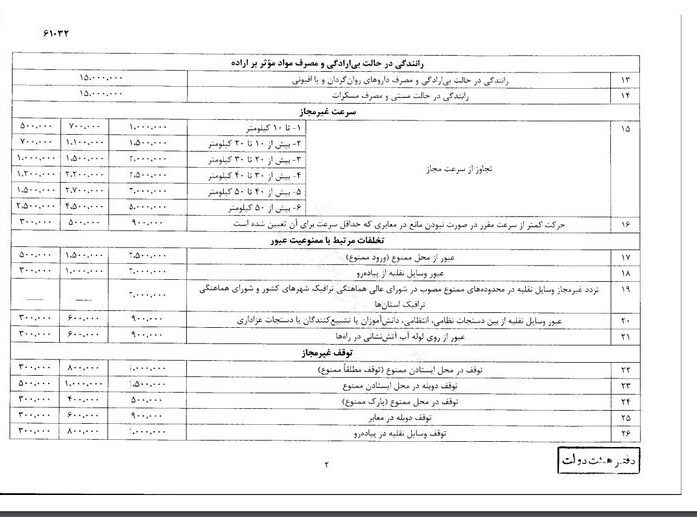 ۶۱۰۳۲
رانندگی در حالت بی‌ارادگی و مصرف مواد مؤثر بر اراده
۱۳ رانندگی در حالت بی‌ارادگی و مصرف داروهای روان‌گردان و یا افیونی ۱۵،۰۰۰،۰۰۰
۱۴ رانندگی در حالت مستی و مصرف مسکرات ۱۵،۰۰۰،۰۰۰
سرعت غیرمجاز
۱۵ تجاوز از سرعت مجاز
۱- تا ۱۰ کیلومتر ۱،۰۰۰،۰۰۰ ۷۰۰،۰۰۰ ۵۰۰،۰۰۰
۲- بیش از ۱۰ تا ۲۰ کیلومتر ۱،۵۰۰،۰۰۰ ۱،۱۰۰،۰۰۰ ۷۰۰،۰۰۰
۳- بیش از ۲۰ تا ۳۰ کیلومتر ۲،۰۰۰،۰۰۰ ۱،۵۰۰،۰۰۰ ۱،۰۰۰،۰۰۰
۴- بیش از ۳۰ تا ۴۰ کیلومتر ۲،۵۰۰،۰۰۰ ۲،۲۰۰،۰۰۰ ۱،۲۰۰،۰۰۰
۵- بیش از ۴۰ تا ۵۰ کیلومتر ۳،۰۰۰،۰۰۰ ۲،۷۰۰،۰۰۰ ۱،۵۰۰،۰۰۰
۶- بیش از ۵۰ کیلومتر ۵،۰۰۰،۰۰۰ ۴،۵۰۰،۰۰۰ ۲،۵۰۰،۰۰۰
۱۶ حرکت کمتر از سرعت مقرر در صورت نبودن مانع در معابری که حداقل سرعت برای آن تعیین شده است ۹۰۰،۰۰۰ ۵۰۰،۰۰۰ ۳۰۰،۰۰۰
تخلفات مرتبط با ممنوعیت عبور
۱۷ عبور از محل ممنوع (ورود ممنوع) ۲،۵۰۰،۰۰۰ ۱،۵۰۰،۰۰۰ ۵۰۰،۰۰۰
۱۸ عبور وسایل نقلیه از پیاده‌رو ۲،۰۰۰،۰۰۰ ۱،۰۰۰،۰۰۰ ۳۰۰،۰۰۰
۱۹ تردد غیرمجاز وسایل نقلیه در محدوده‌های ممنوع مصوب در شورای عالی هماهنگی ترافیک شهرهای کشور و شورای هماهنگی
ترافیک استان‌ها ۲،۰۰۰،۰۰۰ — —
۲۰ عبور وسایل نقلیه از بین دستجات نظامی، انتظامی، دانش‌آموزان یا تشییع‌کنندگان یا دستجات عزاداری ۹۰۰،۰۰۰ ۶۰۰،۰۰۰ ۳۰۰،۰۰۰
۲۱ عبور از روی لوله آب آتش‌نشانی در راه‌ها ۹۰۰،۰۰۰ ۶۰۰،۰۰۰ ۳۰۰،۰۰۰
توقف غیرمجاز
۲۲ توقف در محل ایستادن ممنوع (توقف مطلقاً ممنوع) ۱،۰۰۰،۰۰۰ ۸۰۰،۰۰۰ ۳۰۰،۰۰۰
۲۳ توقف دوبله در محل ایستادن ممنوع ۱،۵۰۰،۰۰۰ ۱،۰۰۰،۰۰۰ ۵۰۰،۰۰۰
۲۴ توقف در محل ممنوع (پارک ممنوع) ۵۰۰،۰۰۰ ۴۰۰،۰۰۰ ۳۰۰،۰۰۰
۲۵ توقف دوبله در معابر ۹۰۰،۰۰۰ ۶۰۰،۰۰۰ ۳۰۰،۰۰۰
۲۶ توقف وسایل نقلیه در پیاده‌رو ۱،۰۰۰،۰۰۰ ۸۰۰،۰۰۰ ۳۰۰،۰۰۰
۲
دفتر هیئت دولت